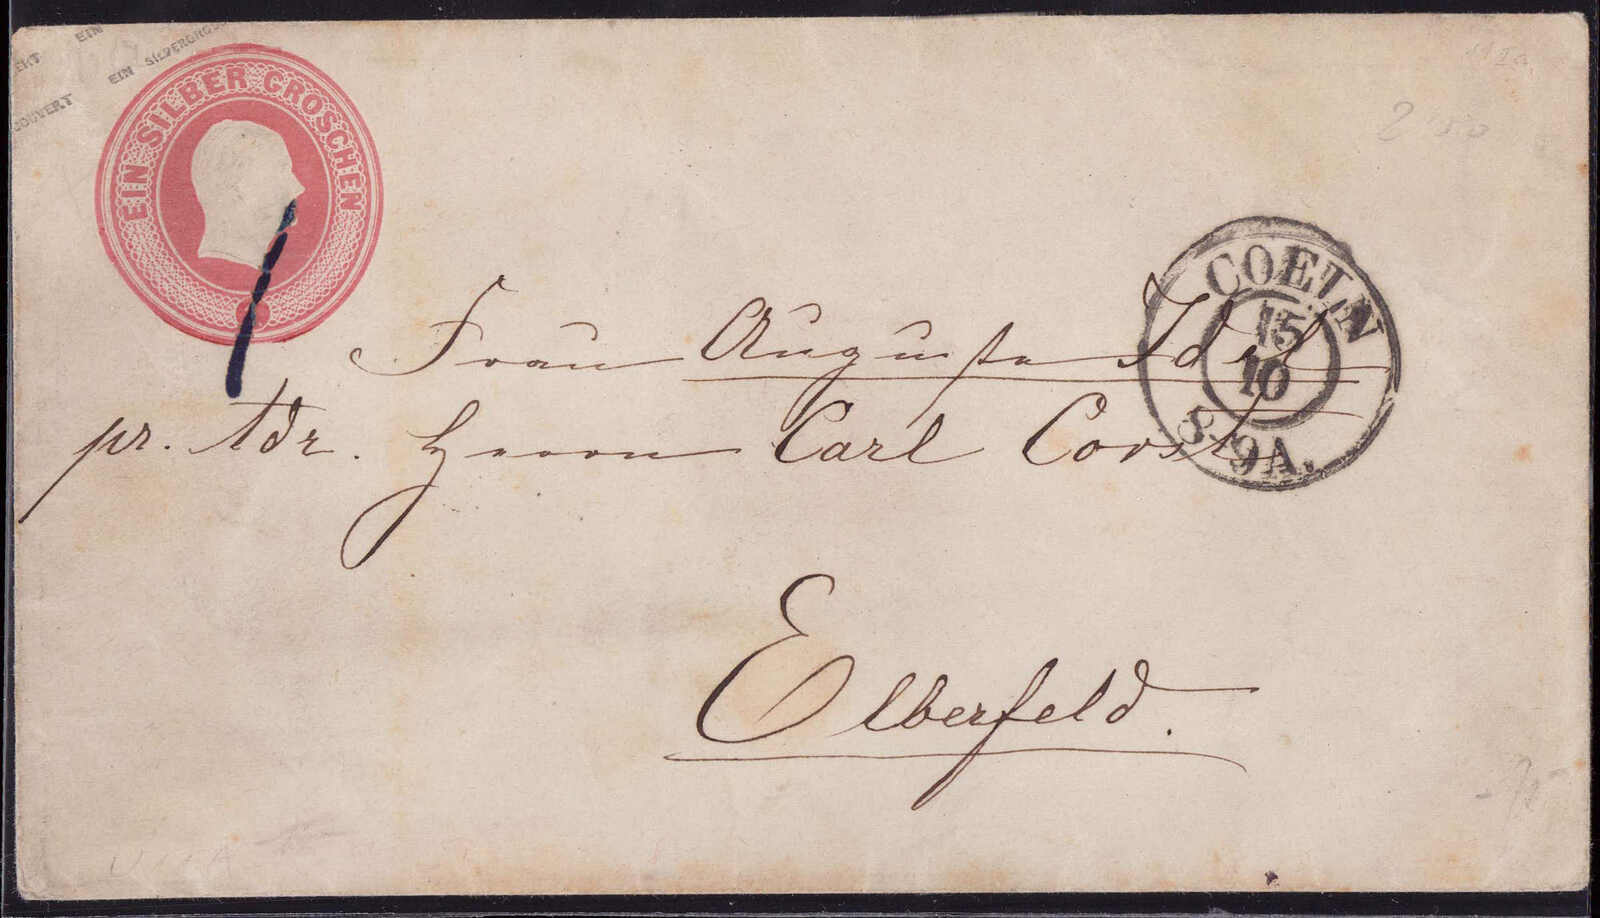 EIN
EIN SILBERGROS
COUVERT
EIN SILBER GROSCHEN
COELN
15
10
8-9A.
Frau Auguste Idel
pr. Adr. Herrn Carl Coost
Elberfeld.